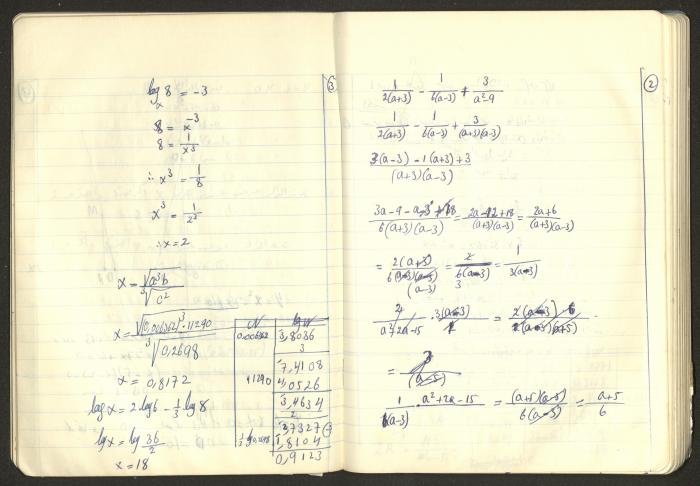 ③
log_x 8 = -3
8 = x^-3
8 = 1/x^3
∴ x^3 = 1/8
x^3 = 1/2^3
∴ x = 2
x = √(a^3 b) / ∛(c^2)
x = √((0,006362)^3 · 11290) / ∛(0,2698)
x = 0,8172
log x = 2 log 6 - 1/3 log 8
lg x = lg 36/2
x = 18
N log N
0.006362 3,8036
3
7,4108
11290 4,0526
3,4634
2
1,8104
0,9123
②
1/2(a+3) - 1/6(a-3) + 3/a²-9
1/2(a+3) - 1/6(a-3) + 3/(a+3)(a-3)
3(a-3) - 1(a+3) + 3 / (a+3)(a-3)
3a-9-a-3+18 / 6(a+3)(a-3) = 2a-12+18 / (a+3)(a-3) = 2a+6 / (a+3)(a-3)
= 2(a+3) / 6(a+3)(a-3) (a-3) = 2 / 6(a-3) 3 = 1 / 3(a-3)
a²+2a-15 · 3(a-3) = 2(a-3) 6 / 2(a-3)(a+5)
= 3 / (a-5)
1 / 6(a-3) · a²+2a-15 = (a+5)(a-3) / 6(a-3) = a+5 / 6